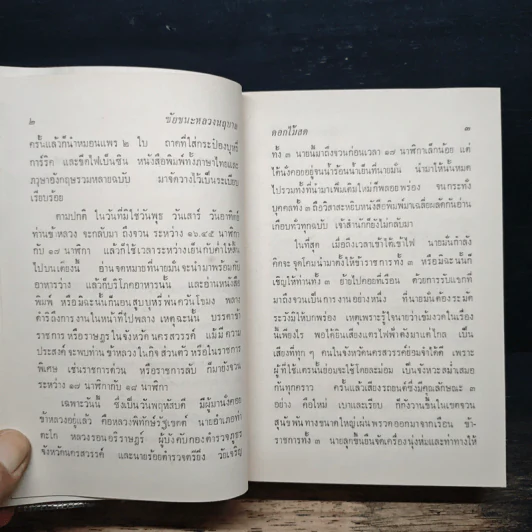 ๒ ชัยชนะหลวงนฤบาล
ครั้นแล้วก็นำหมอนแพร ๒ ใบ ถาดที่ใส่กระป๋องบุหรี่
การิริค และขีดไฟเป็นซิน หนังสือพิมพ์ทั้งภาษาไทยและ
ภาษาอังกฤษรวมหลายฉบับ มาจัดวางไว้เป็นระเบียบ
เรียบร้อย
ตามปกติ ในวันที่มิใช่วันพุธ วันเสาร์ วันอาทิตย์
ท่านข้าหลวง จะกลับมาถึงจวน ระหว่าง ๑๖.๔๕ นาฬิกา
กับ ๑๗ นาฬิกา แล้วก็ใช้เวลาระหว่างเย็นกับค่ำให้สิ้น
ไปบนเตียงนี้ อ่านจดหมายที่นายมั่นจะนำมาพร้อมกับ
อาหารว่าง แล้วก็บริโภคอาหารนั้น และอ่านหนังสือ
พิมพ์ หรือมิฉะนั้นก็นอนสูบบุหรี่พ่นควันโขมง พลาง
ดำริถึงการงานในหน้าที่ไปพลาง เหตุฉะนั้น บรรดาข้า
ราชการ หรือราษฎรในจังหวัดนครสวรรค์ แม้มีความ
ประสงค์จะพบท่านข้าหลวงในกิจส่วนตัว หรือในราชการ
พิเศษ เช่นราชการด่วน หรือราชการลับ ก็มายังจวน
ระหว่าง ๑๗ นาฬิกากับ ๑๘ นาฬิกา
เฉพาะวันนี้ ซึ่งเป็นวันพฤหัสบดี มีผู้มานั่งคอย
ข้าหลวงอยู่แล้ว คือหลวงพิทักษ์รัฐเขตต์ นายอำเภอท่า
ตะโก หลวงรอนอริราษฎร์ ผู้บังคับกองตำรวจภูธร
จังหวัดนครสวรรค์ และนายร้อยตำรวจตรีถึง วัยเจริญ
ดอกไม้สด ๓
ทั้ง ๓ นายนี้มาถึงจวนก่อนเวลา ๑๗ นาฬิกาเล็กน้อย แต่
ได้นั่งคอยอยู่จนน้ำร้อนน้ำเย็นที่นายมั่น นำมาให้นั้นหมด
ไปรวมทั้งที่นำมาเพิ่มเติมใหม่ก็พลอยพร่อง จนกระทั่ง
บุคคลทั้ง ๓ ถือวิสาสะหยิบหนังสือพิมพ์มาเฉลี่ยผลัดกันอ่าน
เกือบทั่วทุกฉบับ เจ้าสำนักก็ยังไม่กลับมา
ในที่สุด เมื่อถึงเวลาเข้าไต้เข้าไฟ นายมั่นกำลัง
คิดจะจุดโคมนำมาตั้งให้ข้าราชการทั้ง ๓ หรือมิฉะนั้นก็
เชิญให้ท่านทั้ง ๓ ย้ายไปคอยที่เรือน ด้วยการรับแขกที่
มาถึงจวนเป็นการงานอย่างหนึ่ง ที่นายมั่นต้องระมัด
ระวังมิให้บกพร่อง เหตุเพราะรู้ใจนายว่าเข้มงวดในเรื่อง
นี้เพียงไร พอได้ยินเสียงแตรไฟฟ้าดังมาแต่ไกล เป็น
เสียงที่ทุก ๆ คนในจังหวัดนครสวรรค์ย่อมจำได้ดี เพราะ
ผู้ที่ใช้แตรนั้นย่อมจะใช้โดยละม่อม เป็นจังหวะสม่ำเสมอ
กันทุกคราว ครั้นแล้วเสียงรถยนต์ซึ่งมีคุณลักษณะ ๓
อย่าง คือใหม่ เบาและเรียบ ก็ดังวานขึ้นในเขตจวน
สุนัขพันทางขนาดใหญ่เผ่นพรวดออกมาจากเรือน ข้า
ราชการทั้ง ๓ นายลุกขึ้นยืนจัดเครื่องนุ่งห่มและท่าทางให้